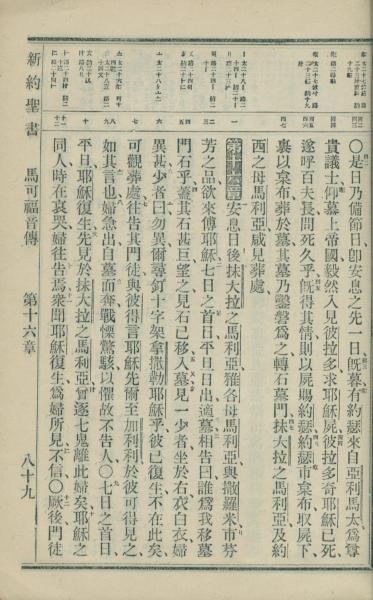 〇是日乃備節日卽安息之先一日旣暮有約瑟來自亞利馬太爲尊
貴議士仰慕上帝國毅然入見彼拉多求耶穌屍彼拉多奇耶穌已死
遂呼百夫長問死久乎旣得其情則以屍賜約瑟約瑟市枲布取屍下
裹以枲布葬於墓其墓乃鑿磐爲之轉石墓門抹大拉之馬利亞及約
西之母馬利亞咸見葬處
第十六章 安息日後抹大拉之馬利亞雅各母馬利亞與撒羅米市芬
芳之品欲來傅耶穌七日之首日平旦日出適墓相告曰誰爲我移墓
門石乎蓋其石甚巨望之見石已移入墓見一少者坐於右衣白衣婦
異甚少者曰勿異爾尋釘十字架拿撒勒耶穌乎彼已復生不在此矣
可觀葬處往告其門徒與彼得言耶穌先爾至加利利於彼可得見之
如其言也婦急出自墓而奔戰慄驚駭以懼故不告人〇七日之首日
平旦耶穌復生先見於抹大拉之馬利亞嘗逐七鬼離此婦矣耶穌之
同人時在哀哭婦往告焉衆聞耶穌復生爲婦所見不信〇厥後門徒
新約聖書 馬可福音傳 第十六章 八十九